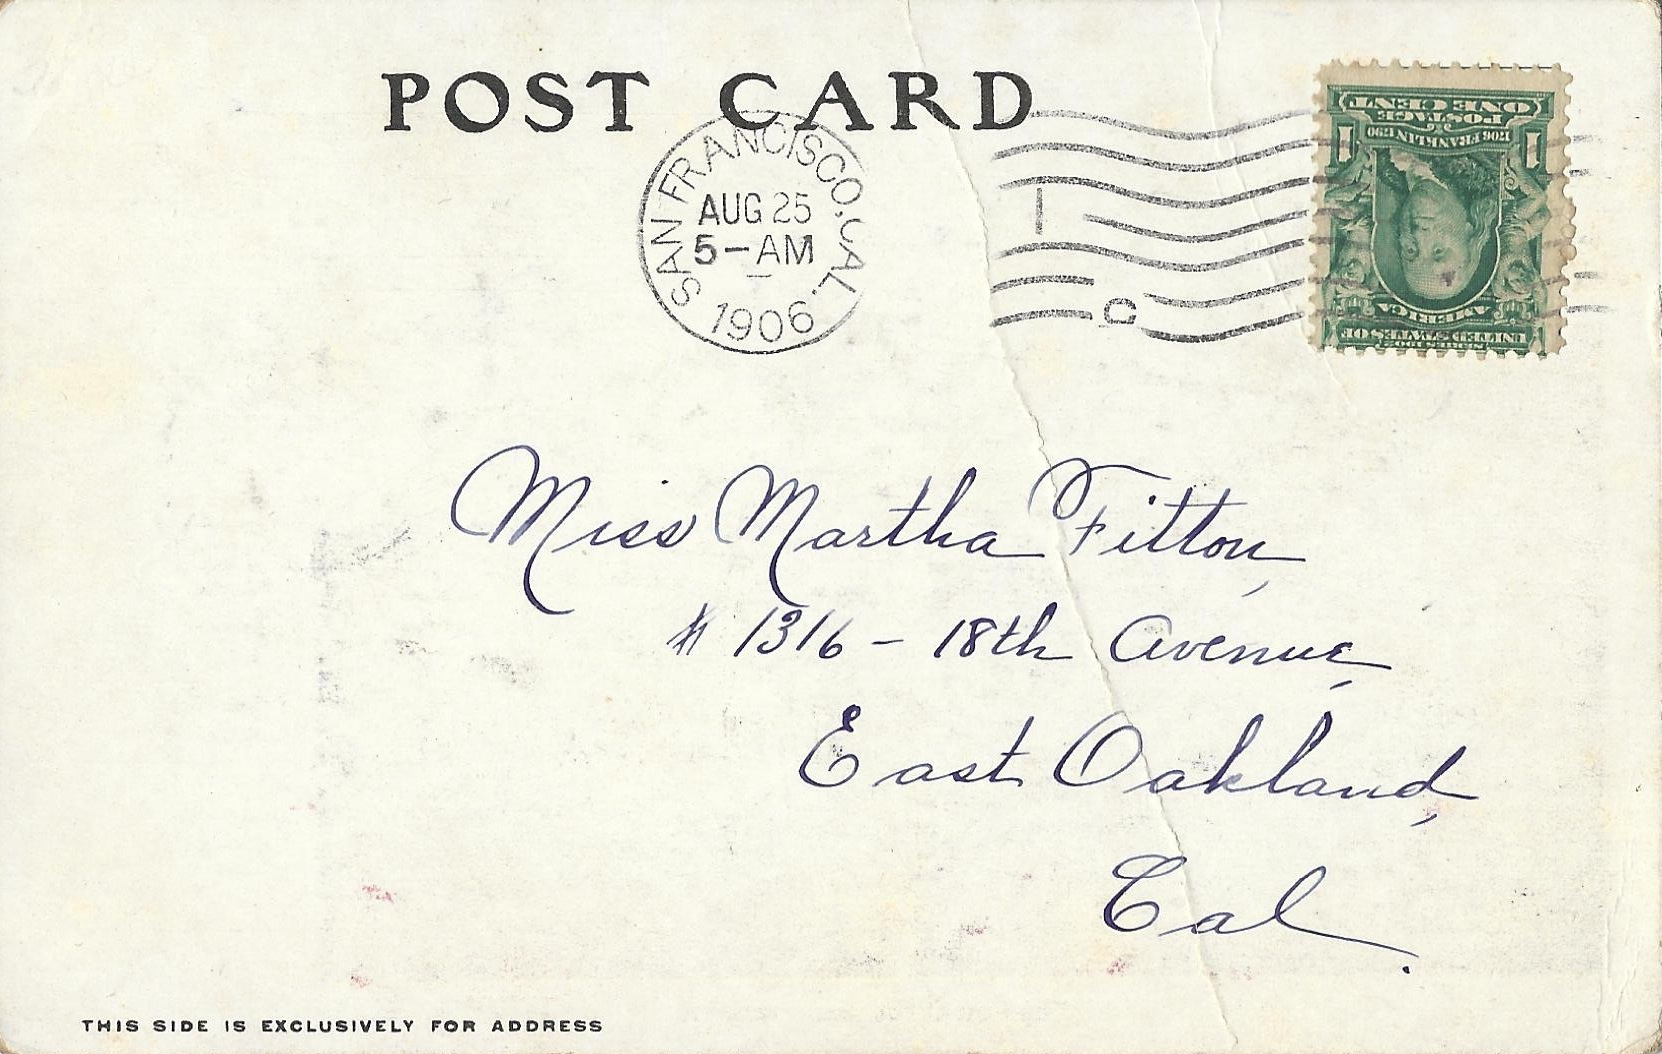 POST CARD
SAN FRANCISCO, CAL.
AUG 25
5-AM
1906
1
C
ONE CENT
POSTAGE
1706 FRANKLIN 1790
1 1
AMERICA
UNITED STATES OF
SERIES 1902
Miss Martha Fitton,
# 1316 - 18th Avenue,
East Oakland,
Cal.
THIS SIDE IS EXCLUSIVELY FOR ADDRESS